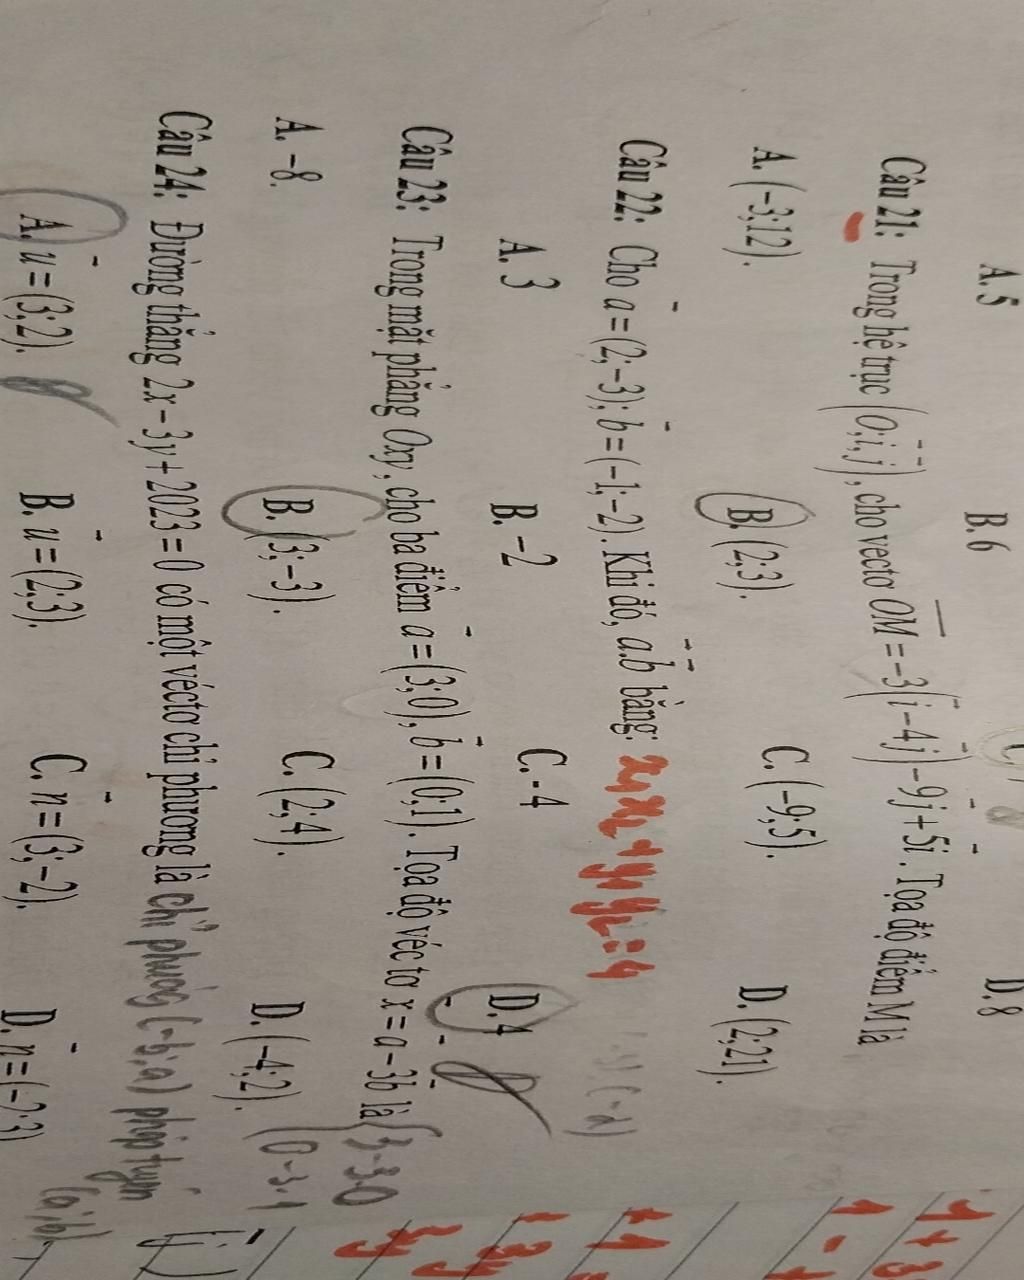 A. 5 B. 6 C. D. 8
Câu 21: Trong hệ trục (O;i,j), cho vectơ OM = -3(i-4j)-9j+5i. Tọa độ điểm M là
A. (-3;12). B. (2;3). C. (-9;5). D. (2;21).
Câu 22: Cho a = (2;-3); b = (-1;-2). Khi đó, a.b bằng: x₁x₂+y₁y₂=4
A. 3 B. -2 C. -4 D. 4
Câu 23: Trong mặt phẳng Oxy, cho ba điểm a = (3;0), b = (0;1). Tọa độ véc tơ x = a - 3b là { 3-3.0
0-3.1
A. -8. B. (3;-3). C. (2;4). D. (-4;2).
Câu 24: Đường thẳng 2x-3y+2023=0 có một véctơ chỉ phương là chỉ phương (-b;a) pháp tuyến
(a;b)
A. u = (3;2). B. u = (2;3). C. n = (3;-2). D. n = (-2;3)